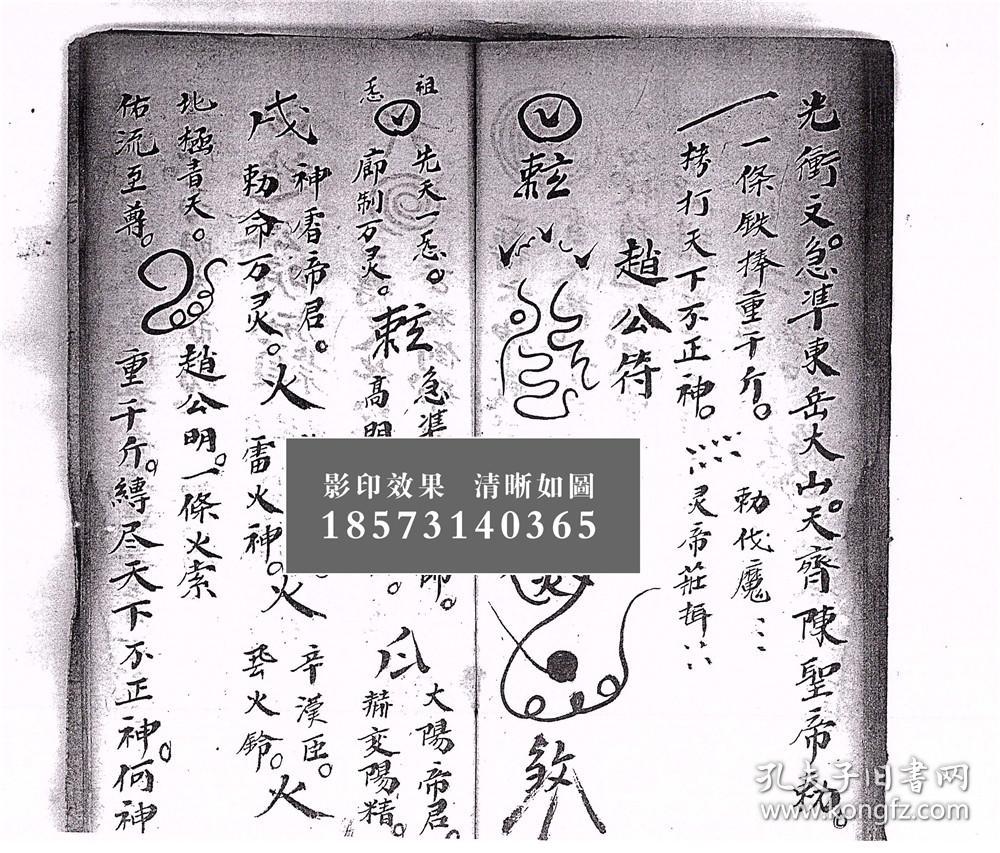 光衝文。急準東岳大山。天齊陳聖帝勅。
一條鉄捧重千斤。 勅伐魔
打天下不正神。 灵帝莊
趙公符
祖
先天一炁。 急準 師。 大陽帝君。
炁 廊制万灵。 高明 赫变陽精。
神霄帝君。 辛漢臣。
戌 勅命万灵。火 雷火神。火 火鈴。火
北極青天。 趙公明。一條火索
佑流至尊。 重千斤。縛尽天下不正神。何神
影印效果 清晰如圖
18573140365
孔夫子旧書网
www.kongfz.com